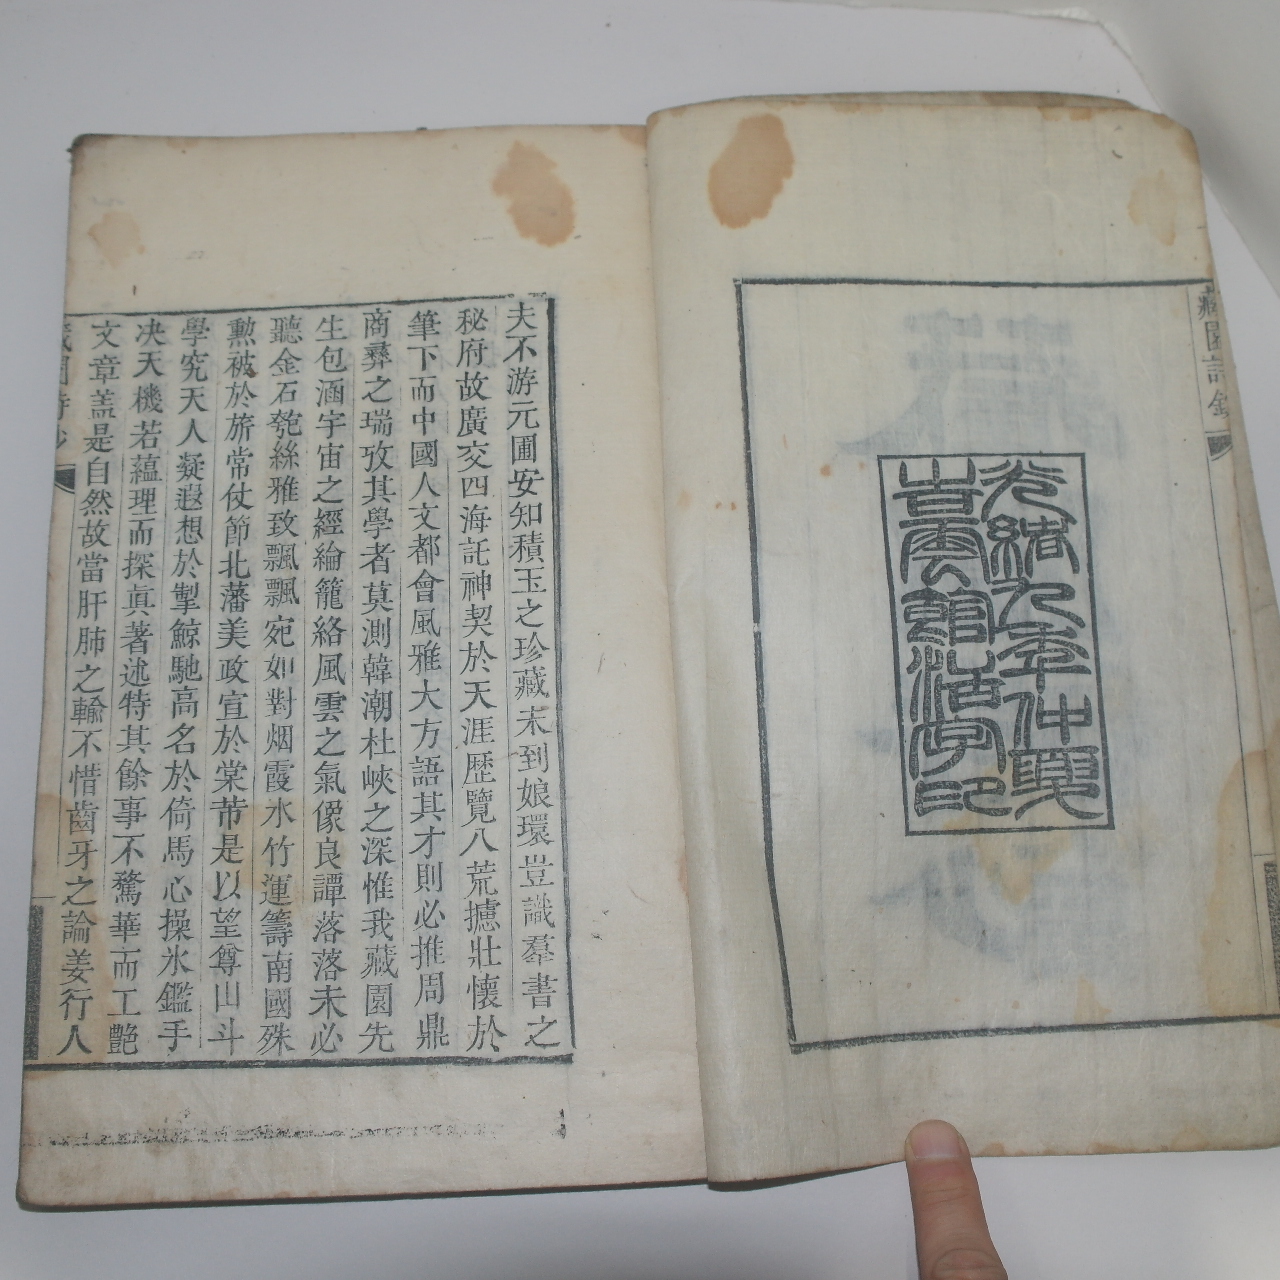 藏園詩鈔
光緒九年仲夏
古雲館活字印
夫不游元圃安知積玉之珍藏未到娘環豈識羣書之
秘府故廣交四海託神契於天涯歷覽八荒攄壯懷於
筆下而中國人文都會風雅大方語其才則必推周鼎
商彛之瑞攷其學者莫測韓潮杜峽之深惟我藏園先
生包涵宇宙之經綸籠絡風雲之氣像良譚落落未必
聽金石匏絲雅致飄飄宛如對烟霞水竹運籌南國殊
勲被於旂常仗節北藩美政宣於棠芾是以望尊山斗
學究天人凝遐想於掣鯨馳高名於倚馬心操氷鑑手
决天機若蘊理而探眞著述特其餘事不騖華而工艶
文章盖是自然故當肝肺之輸不惜齒牙之論姜行人
藏園詩鈔